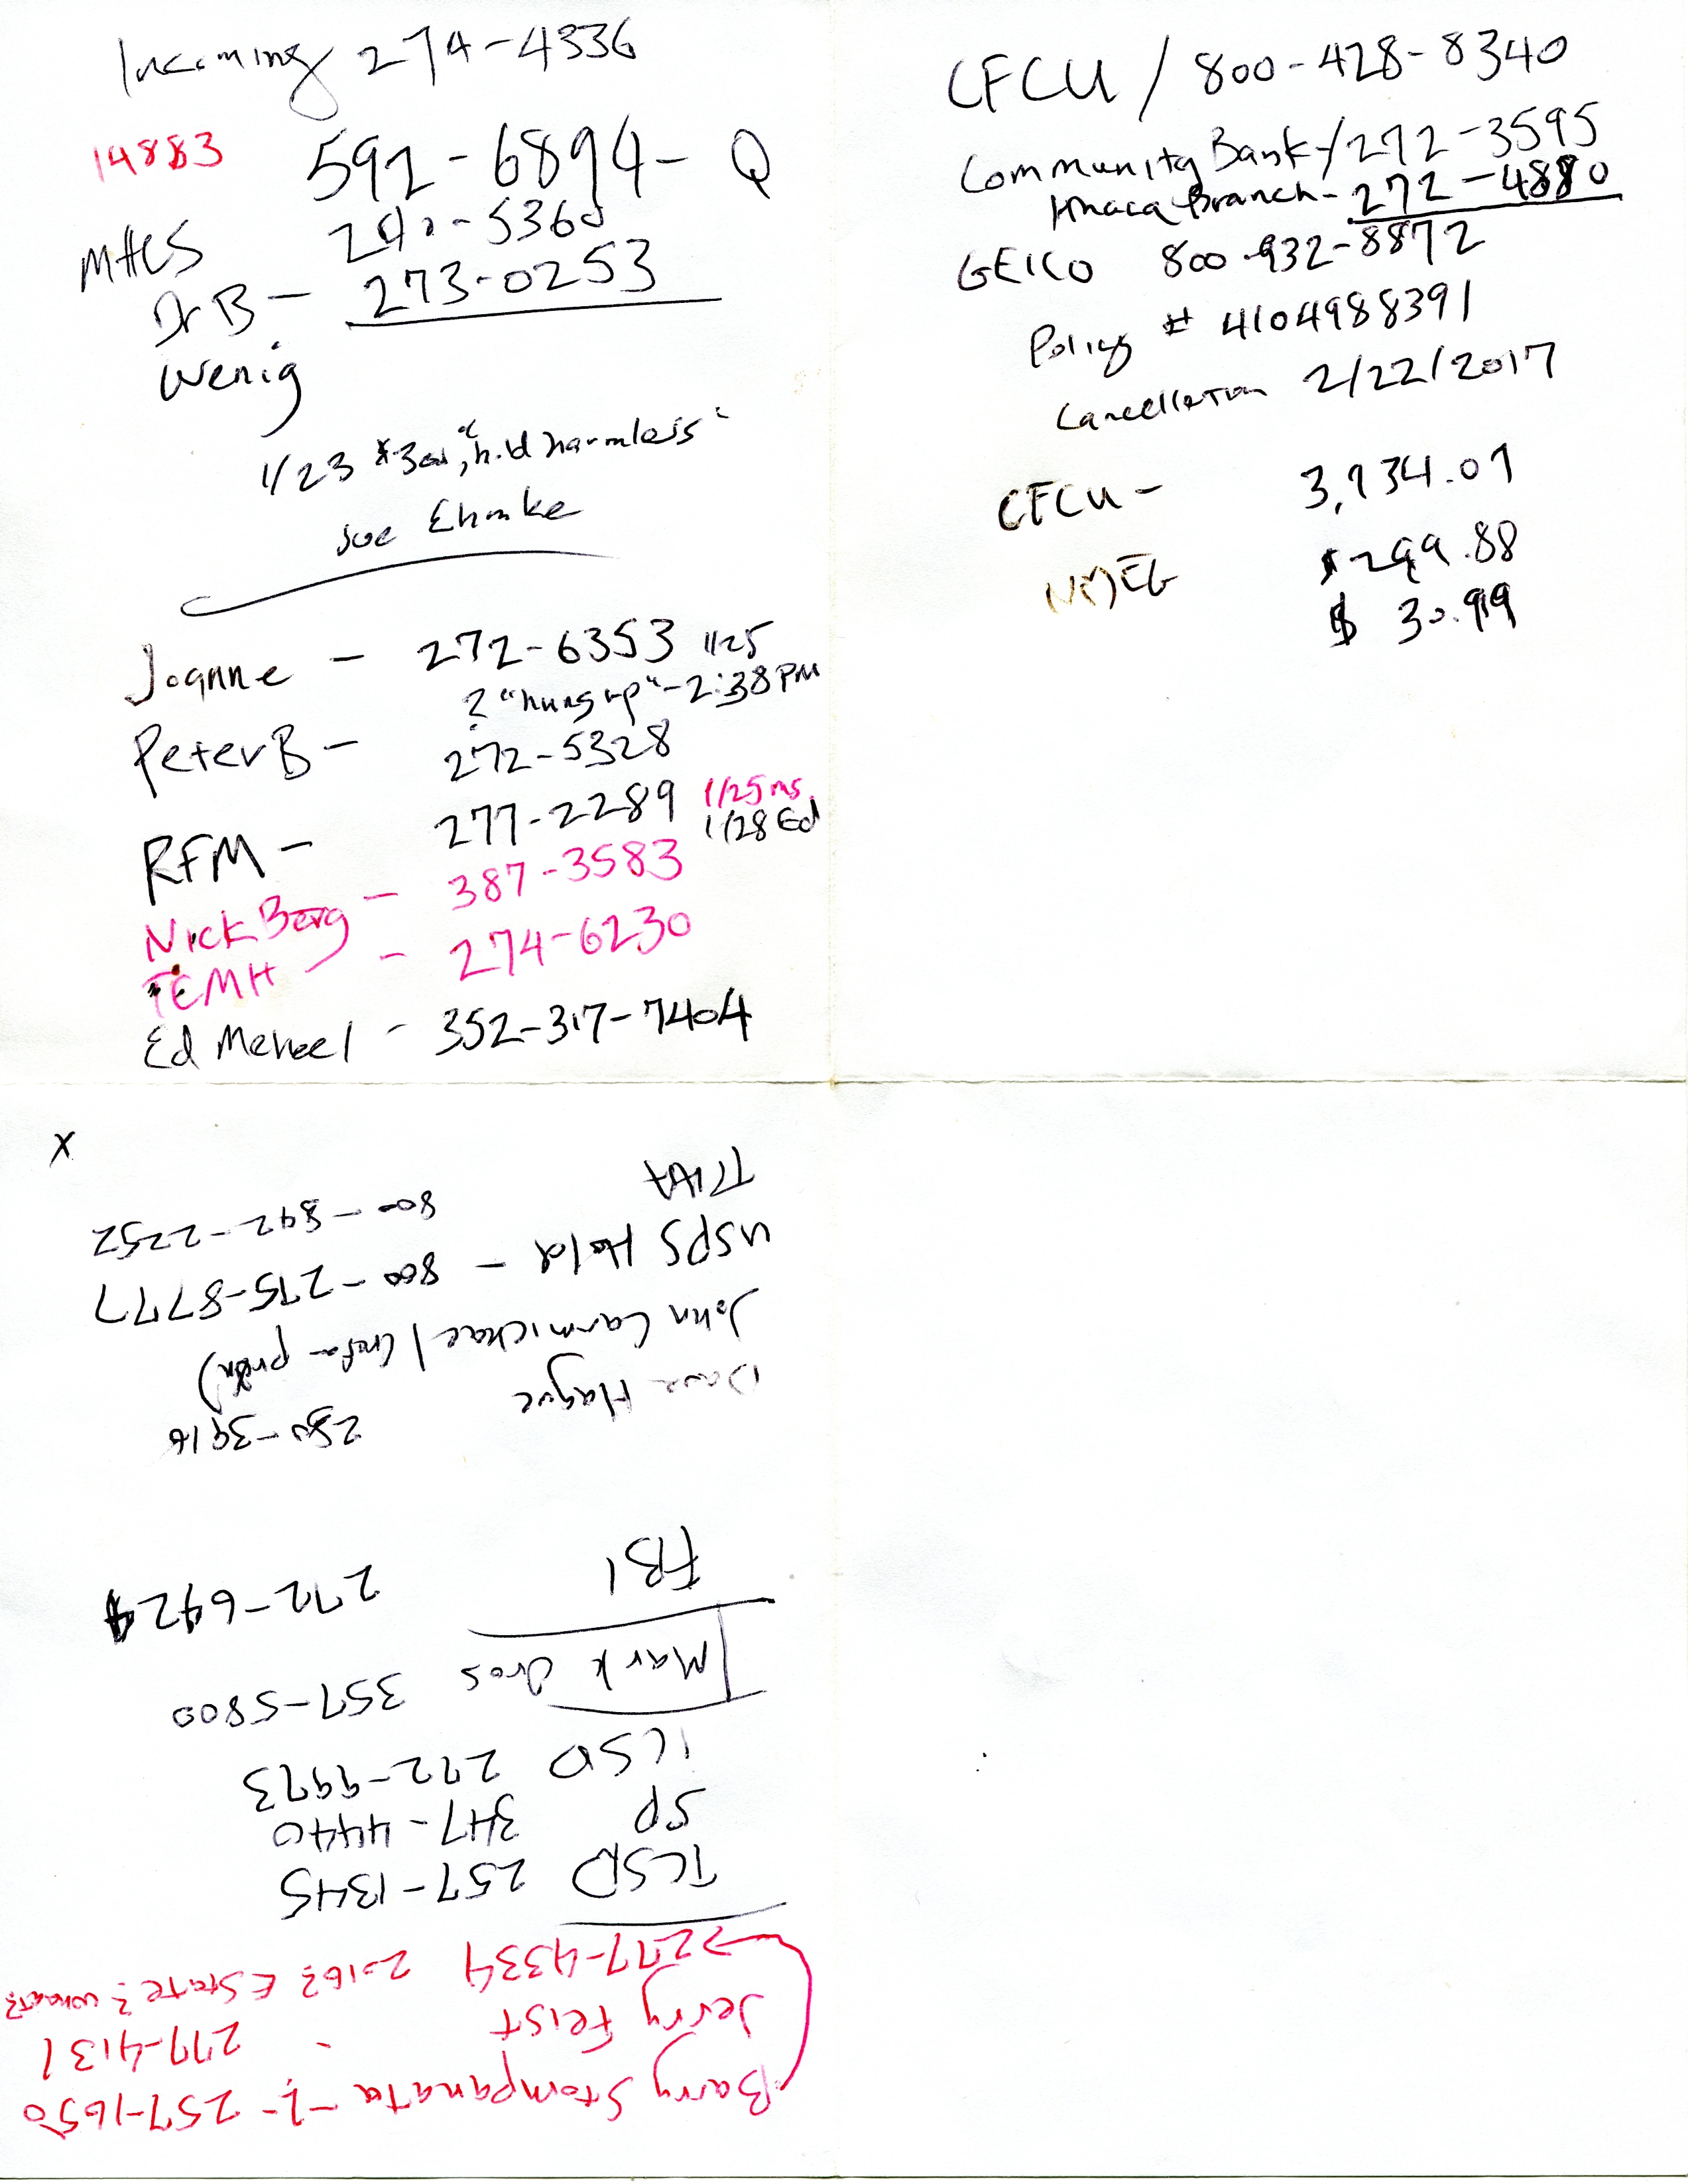 Incoming 274-4336
14883 592-6894- Q
MHCS
Dr B - 273-0253
Wenig
1/23 "hold harmless"
Joe Ehmke
Joanne - 272-6353 1/25
? "hung up" - 2:38 PM
Peter B - 272-5328
RFM - 277-2289 1/25 ms
1/28 Ed
Nick Berg - 387-3583
TEMH - 274-6230
Ed - 352-317-7404
CFCU / 800-428-8340
Community Bank / 272-3595
Ithaca Branch - 272-4880
GEICO 800-932-8872
Policy # 4104988391
Cancellation 2/22/2017
CFCU -
$299.88
$ 30.99
X
Barry Stompanata - 257-1650
277-4131
Jerry Feist
→277-4334 2016? EState? whaat?
TCSD 257-1345
SP 347-4440
ICSD 272-9973
Mark 357-5800
FBI 272-6424
Dave Hague
John Carmichael
USPS Hold - 800-275-8777
800-842-2252